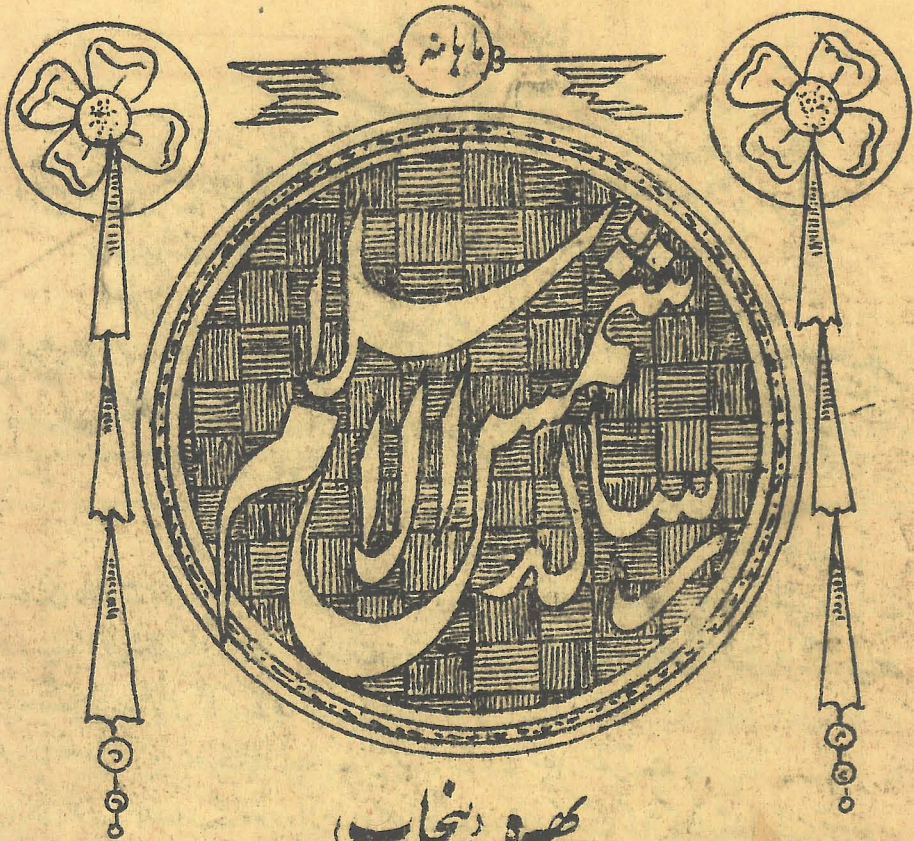 ماہانہ
رسالہ شمس الاسلام
بھیرہ (پنجاب)